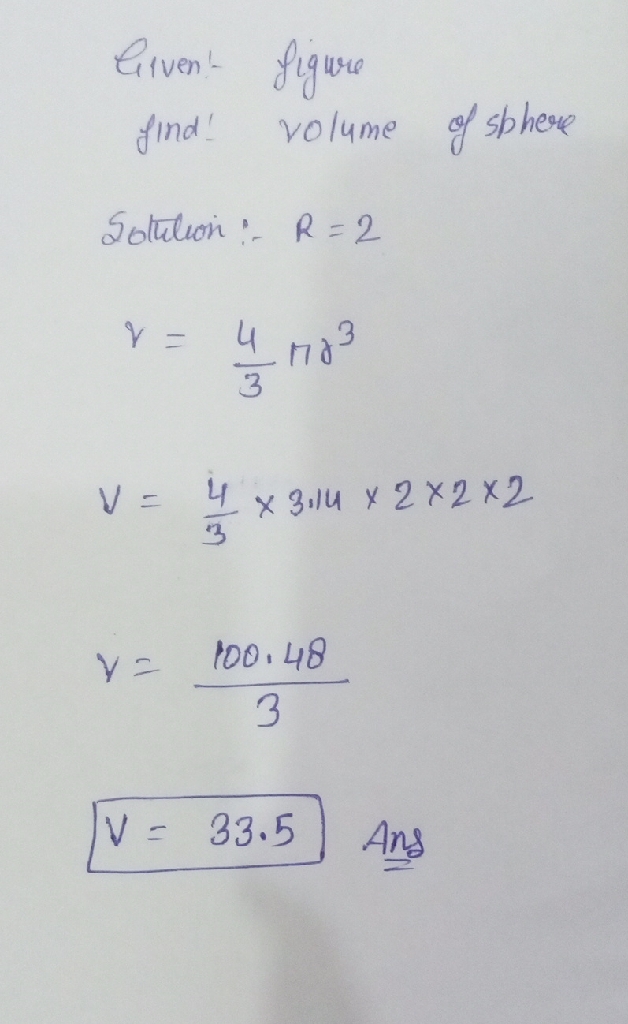 Given:- figure
find: volume of sphere
Solution :- R = 2
V = 4/3 πr³
V = 4/3 × 3.14 × 2 × 2 × 2
V = 100.48/3
V = 33.5 Ans